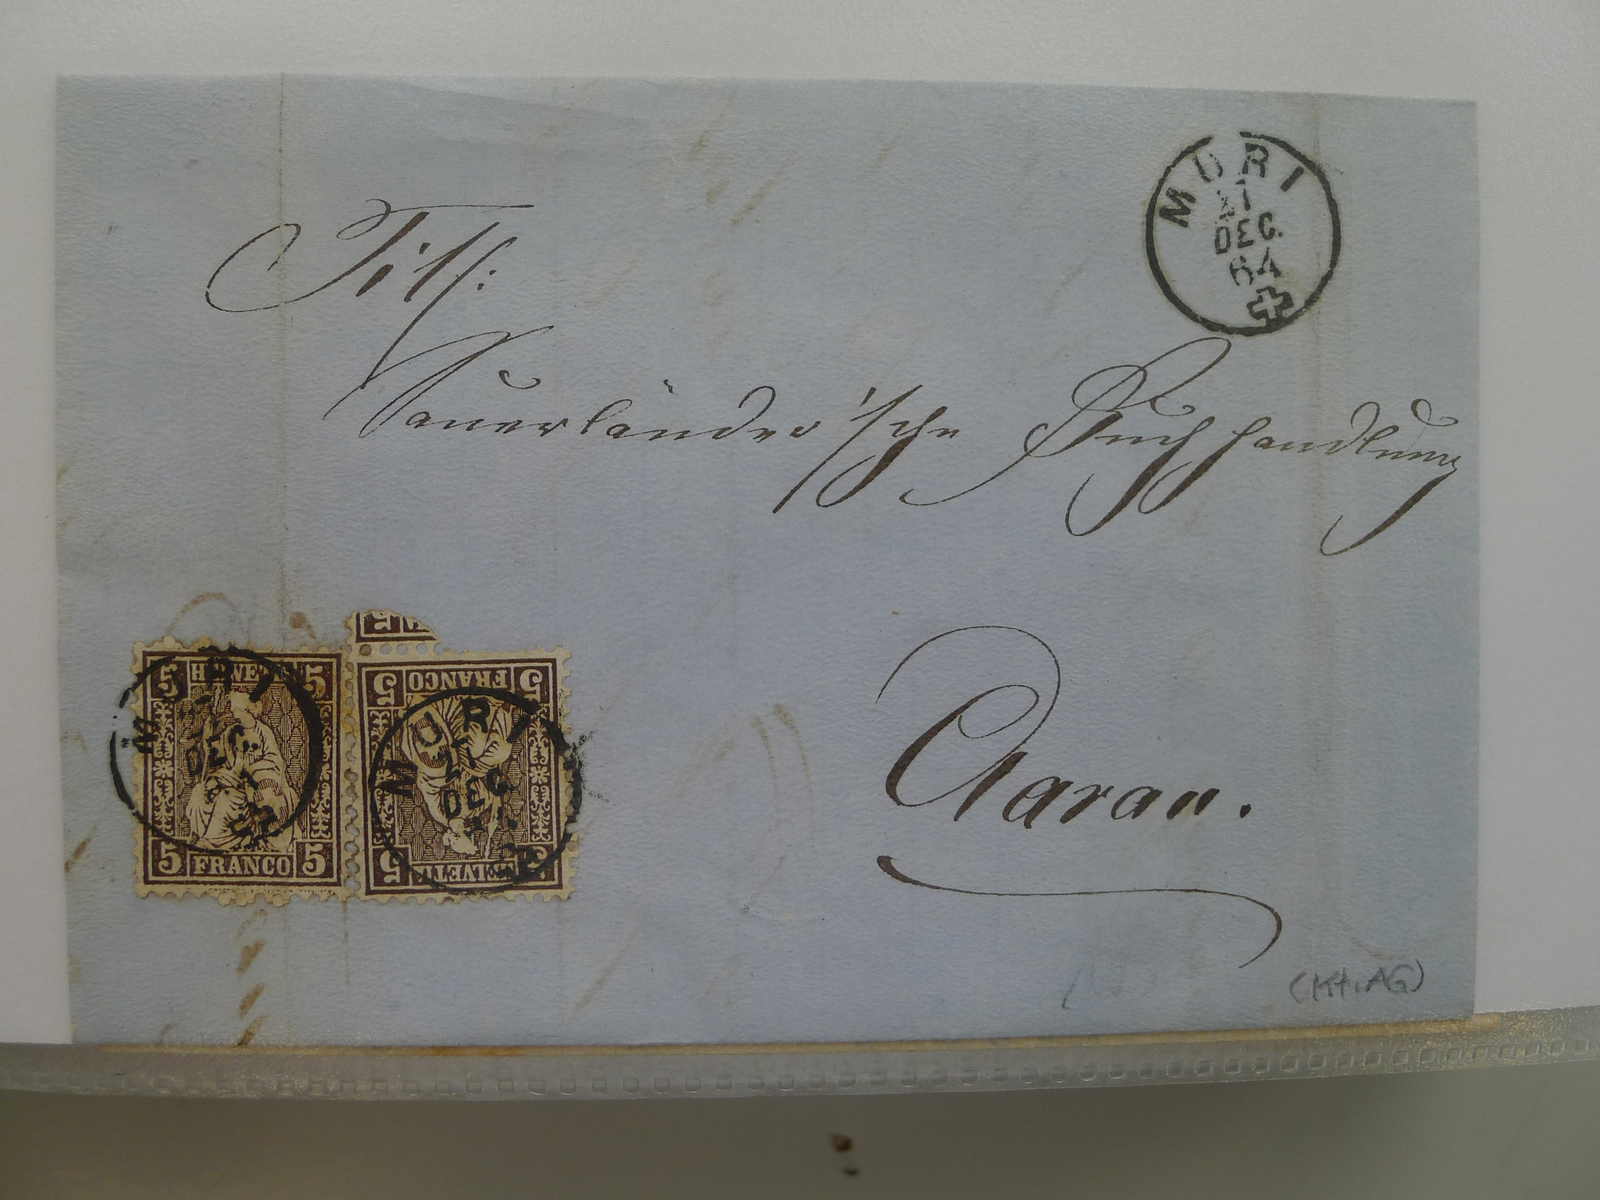 MURI
21
DEC.
64
Titl:
Sauerländer'sche Buchhandlung
Aarau.
5 HELVETIA 5
5 FRANCO 5
MURI
DEC.
5 FRANCO 5
5 HELVETIA 5
MURI
DEC.
(Kt. AG)